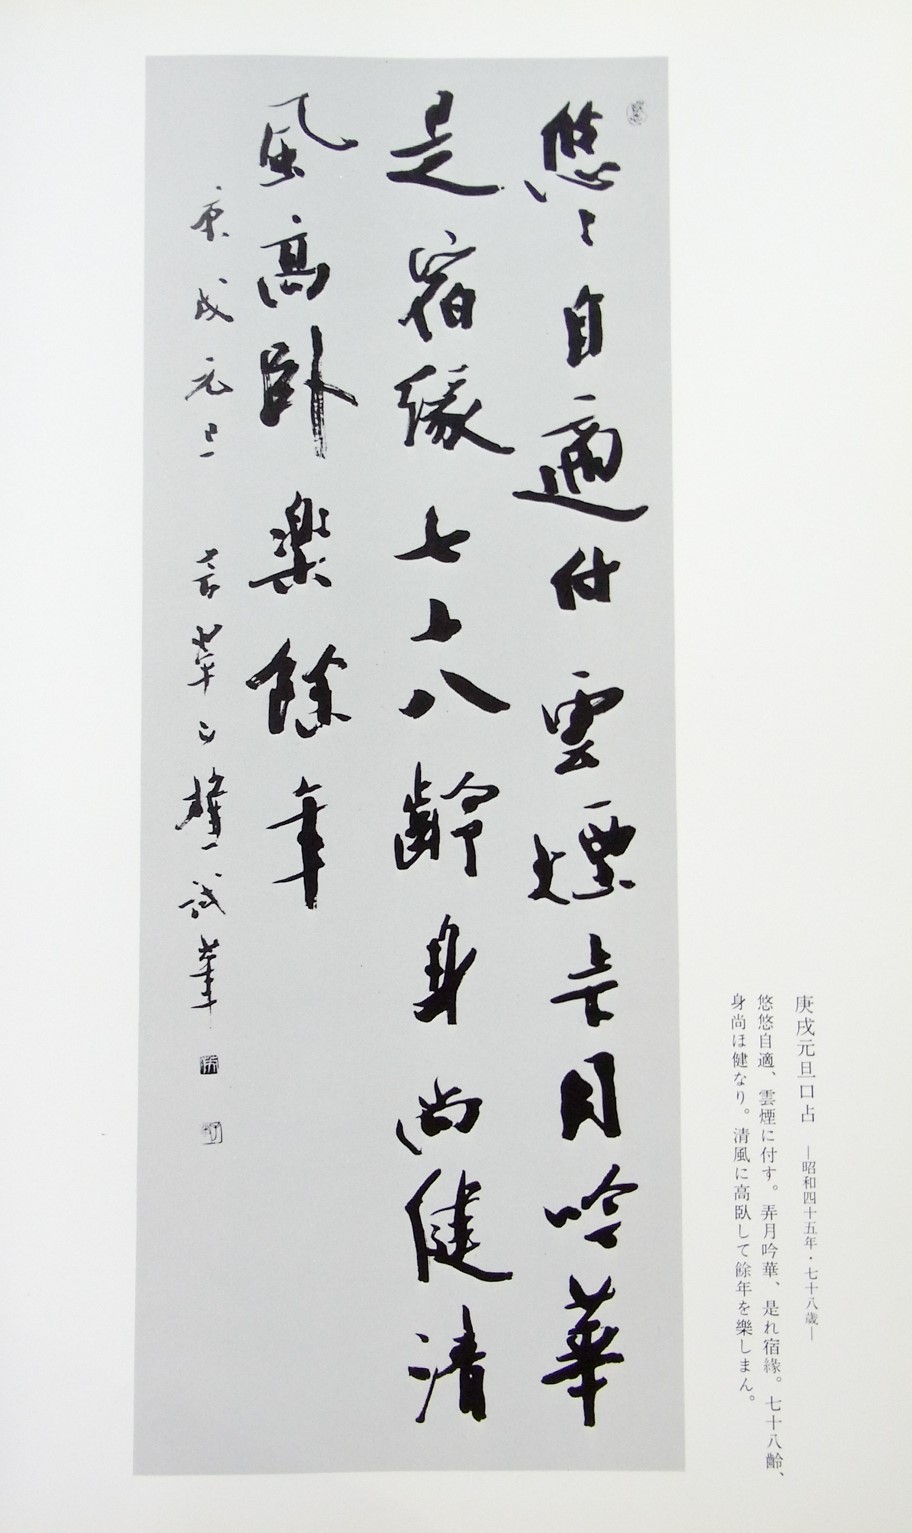 庚戌元旦口占 ―昭和四十五年・七十八歳―
悠悠自適、雲煙に付す。弄月吟華、是れ宿緣。七十八齡、
身尚ほ健なり。清風に高臥して餘年を樂しまん。
悠〻自適付雲煙弄月吟華
是宿緣七十八齡身尚健清
風高臥樂餘年
庚戌元旦 試筆